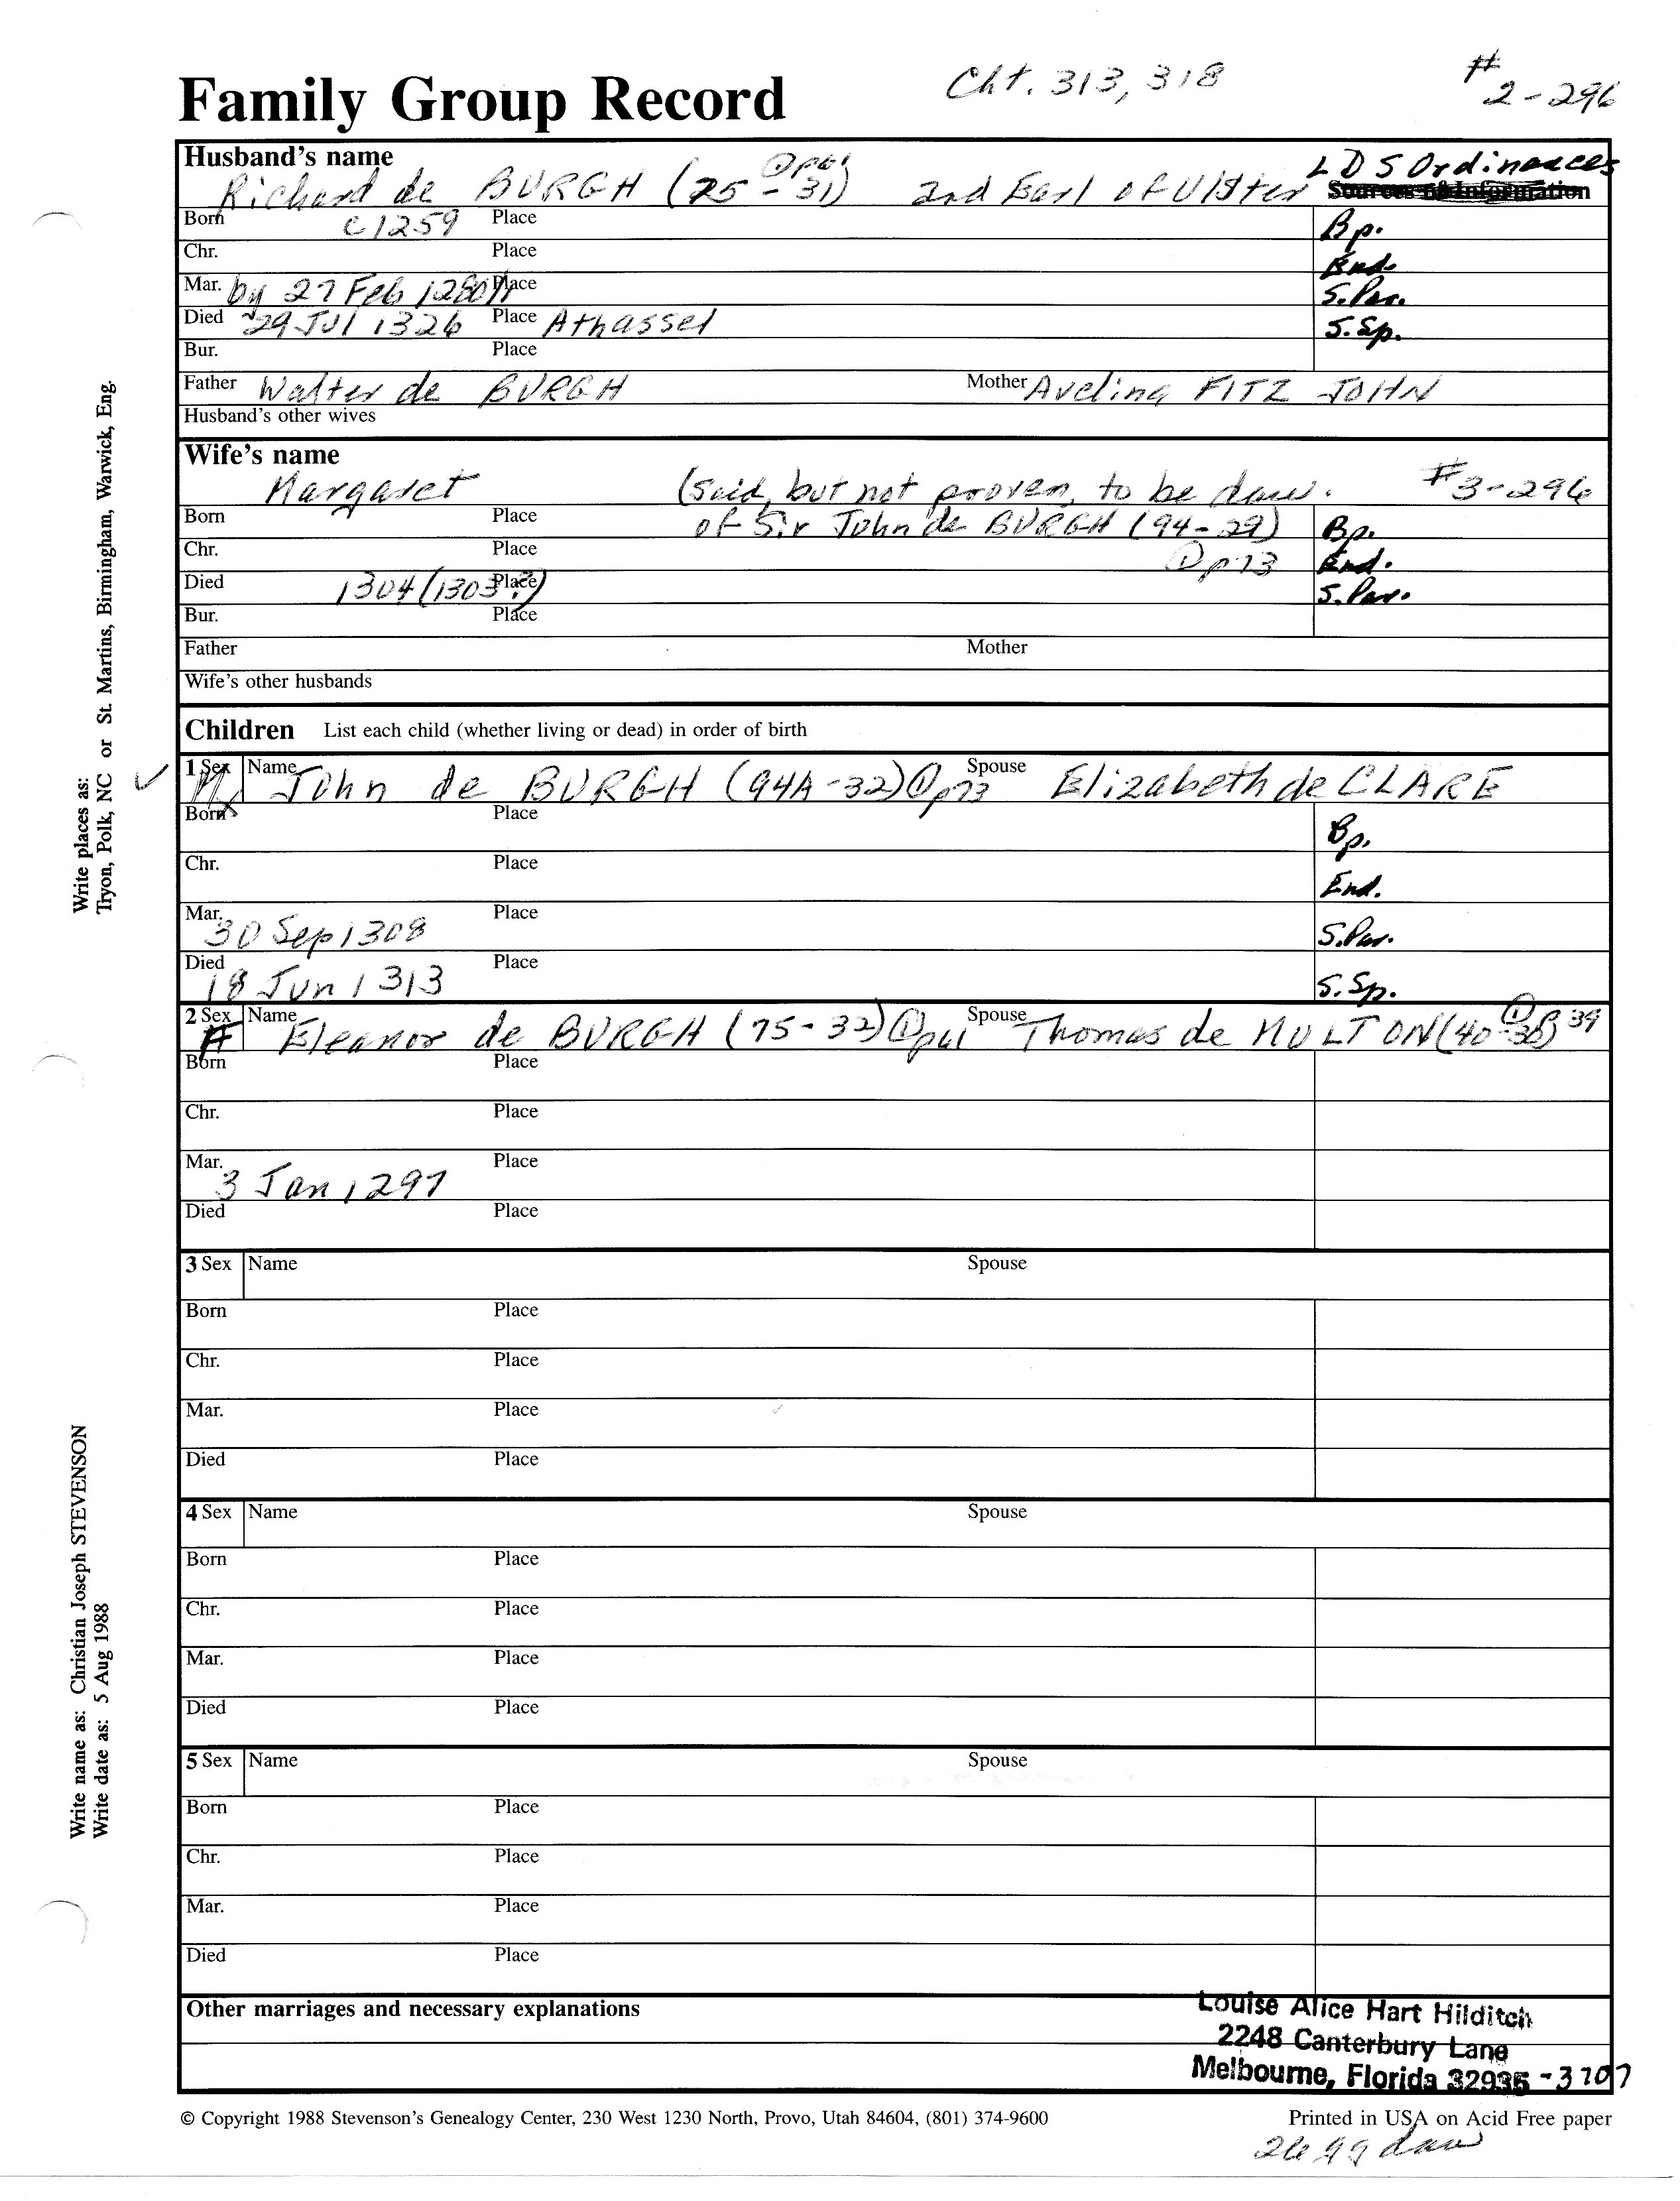 Family Group Record Cht. 313, 318 # 2-296
Husband's name LDS Ordinances
Richard de BURGH (75-31) ① p61 2nd Earl of Ulster
Born c1259 Place Bp.
Chr. Place End.
Mar. by 27 Feb 1280/1 Place S.Par.
Died 29 Jul 1326 Place Athassel S.Sp.
Bur. Place
Father Walter de BURGH Mother Aveling FITZ JOHN
Husband's other wives
Wife's name
Margaret (said, but not proven, to be dau. #3-296
Born Place of Sir John de BURGH (94-29) Bp.
Chr. Place ① p73 End.
Died 1304 (1303?) Place S.Par.
Bur. Place
Father Mother
Wife's other husbands
Children List each child (whether living or dead) in order of birth
1 Sex M Name John de BURGH (94A-32) ① p73 Spouse Elizabeth de CLARE
Born Place Bp.
Chr. Place End.
Mar. 30 Sep 1308 Place S.Par.
Died 18 Jun 1313 Place S.Sp.
2 Sex F Name Eleanor de BURGH (75-32) ① p61 Spouse Thomas de MULTON (40-30) ① p 39
Born Place
Chr. Place
Mar. 3 Jan 1297 Place
Died Place
3 Sex Name Spouse
Born Place
Chr. Place
Mar. Place
Died Place
4 Sex Name Spouse
Born Place
Chr. Place
Mar. Place
Died Place
5 Sex Name Spouse
Born Place
Chr. Place
Mar. Place
Died Place
Other marriages and necessary explanations
Louise Alice Hart Hilditch
2248 Canterbury Lane
Melbourne, Florida 32935-3707
© Copyright 1988 Stevenson's Genealogy Center, 230 West 1230 North, Provo, Utah 84604, (801) 374-9600 Printed in USA on Acid Free paper
26 gg dau
Write places as:
Tryon, Polk, NC or St. Martins, Birmingham, Warwick, Eng.
Write name as: Christian Joseph STEVENSON
Write date as: 5 Aug 1988